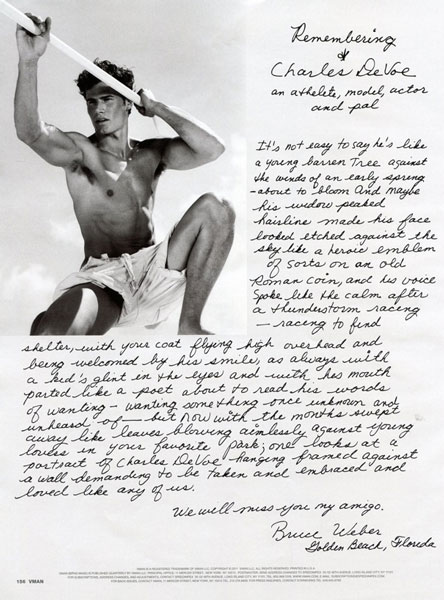 Remembering
Charles DeVoe
an athelete, model, actor
and pal
It's not easy to say he's like
a young barren Tree against
the winds of an early spring
-about to bloom And maybe
his widow peaked
Hairline made his face
looked etched against the
sky like a heroic emblem
of sorts on an old
Roman coin, and his voice
Spoke like the calm after
a thunderstorm racing
— racing to find
shelter, with your coat flying high overhead and
being welcomed by his smile, as always with
a kid's glint in the eyes and with hes mouth
parted like a poet about to read his words
of wanting - wanting something once unknown and
unheard of — but now with the months swept
away like leaves blowing aimlessly against young
loves in your favorite park; one looks at a
portrait of Charles DeVoe Hanging framed against
a wall demanding to be taken and embraced and
loved like any of us.
We will miss you my amigo.
Bruce Weber
Golden Beach, Florida
156 VMAN